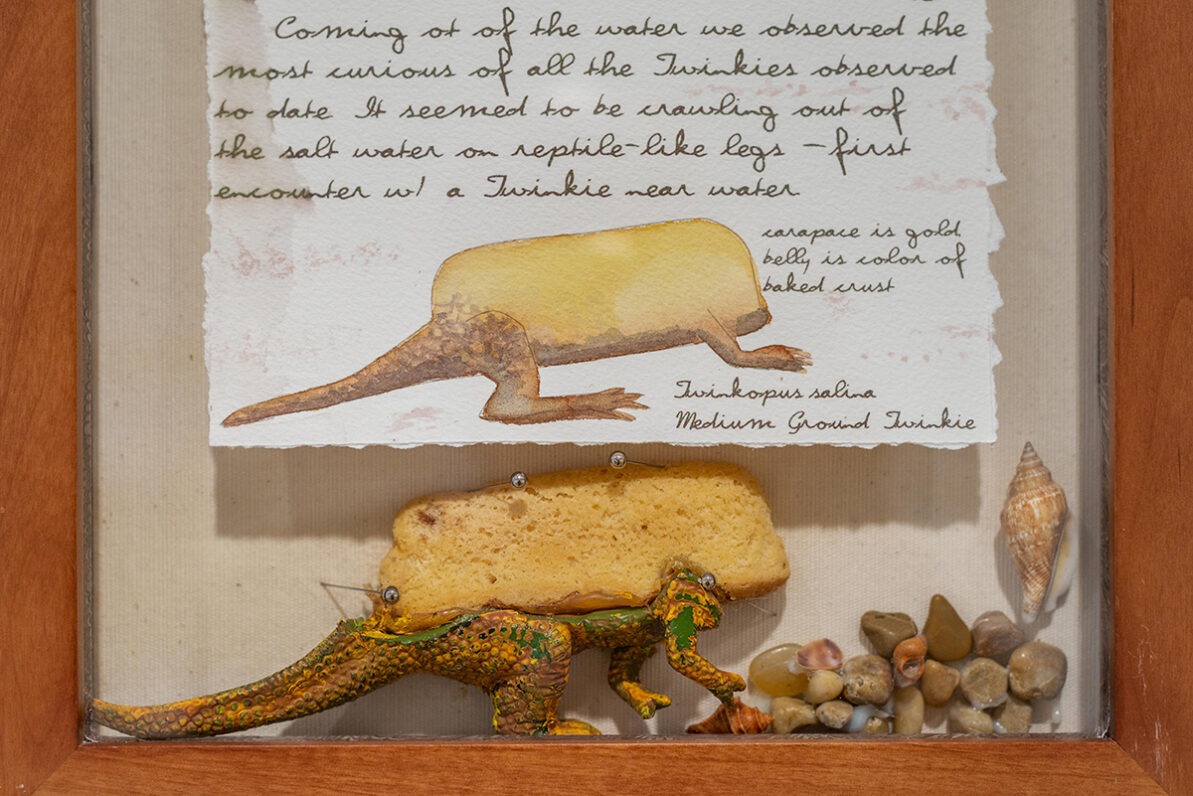 Coming ot of the water we observed the
most curious of all the Twinkies observed
to date. It seemed to be crawling out of
the salt water on reptile-like legs – first
encounter w/ a Twinkie near water
carapace is gold
belly is color of
baked crust
Twinkopus salina
Medium Ground Twinkie